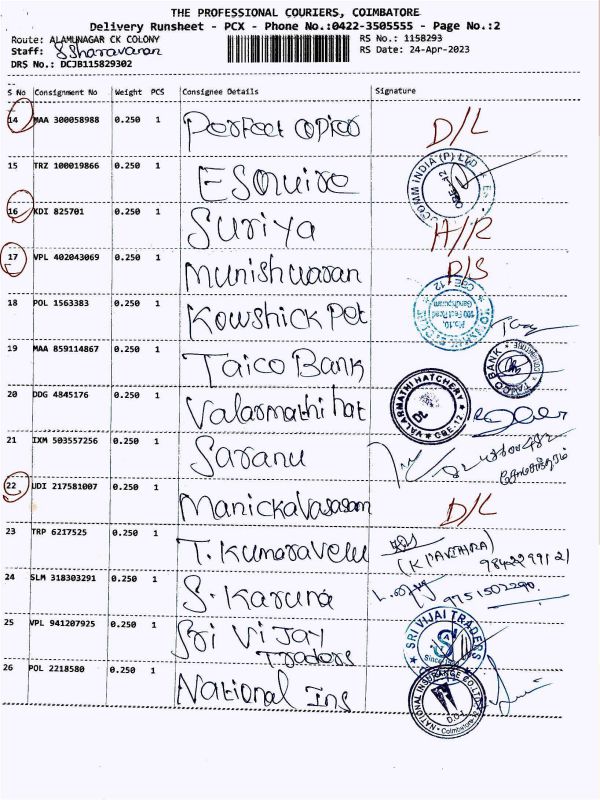 THE PROFESSIONAL COURIERS, COIMBATORE
Delivery Runsheet - PCX - Phone No.:0422-3505555 - Page No.:2
Route: ALAMUNAGAR CK COLONY
RS No.: 1158293
Staff: S Sharavanan
RS Date: 24-Apr-2023
DRS No.: DCJB115829302
S No Consignment No Weight PCS Consignee Details Signature
14 MAA 300058988 0.250 1 Perfect copier D/L
15 TRZ 100019866 0.250 1 Esquire
16 KDI 825701 0.250 1 Suriya H/R
17 VPL 402043069 0.250 1 Munishwaran D/S
18 POL 1563383 0.250 1 Kowshick Pet
19 MAA 859114867 0.250 1 Taico Bank
TAICO BANK
20 DDG 4845176 0.250 1 Valarmathi hat
VALARMATHI HATCHERY CBE-12
21 IXM 503557256 0.250 1 Saranu
22 UDI 217581007 0.250 1 Manickavasasam D/L
23 TRP 6217525 0.250 1 T. Kumaravelu
(K PAVITHRA) 9842299121
24 SLM 318303291 0.250 1 S. Karuna 9751502290
25 VPL 941207925 0.250 1 Sri Vijay
Traders
SRI VIJAI TRADERS
26 POL 2218580 0.250 1 National Ins
NATIONAL INSURANCE CO. LTD
D.O.I
Coimbatore